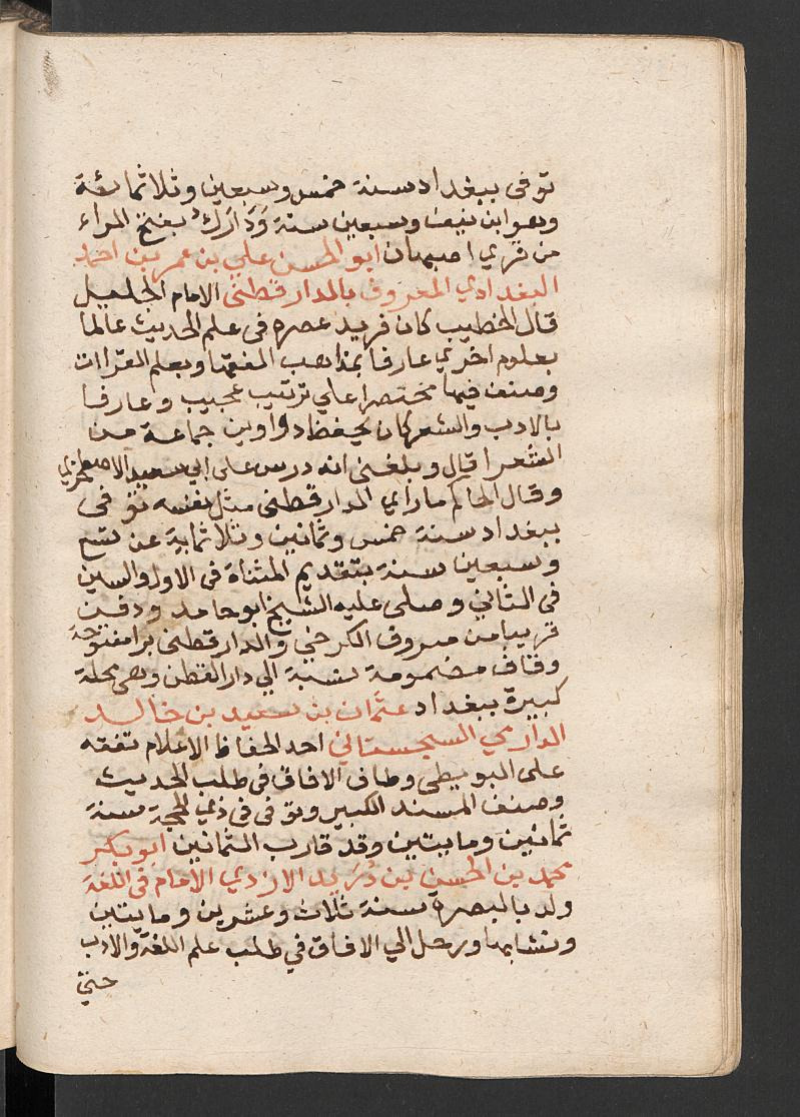 توفى ببغداد سنة خمس وسبعين وثلاثمائة
وهو ابن نيف وسبعين سنة وَدَارَك بفتح الراء
من قري اصبهان ابو الحسن علي بن عمر بن احمد
البغدادي المعروف بالدارقطنى الامام الجليل
قال الخطيب كان فريد عصره فى علم الحديث عالما
بعلوم اخري عارفا بمذاهب الفقها وبعلم القراات
وصنف فيها مختصرا علي ترتيب عجيب وعارفا
بالادب والشعر كان يحفظ دواوين جماعة من
الشعرا قال وبلغنى انه درس على ابي سعيد الاصطخري
وقال الحاكم ما راي الدارقطنى مثل نفسه توفى
ببغداد سنة خمس وثمانين وثلاثماية عن تسع
وسبعين سنة بتقديم المثناة فى الاول والسين
فى الثاني وصلى عليه الشيخ ابو حامد ودفن
قريبا من معروف الكرخي والدارقطنى برا مفتوحة
وقاف مضمومة نسبة الي دار القطن وهى محلة
كبيرة ببغداد عثمان بن سعيد بن خالد
الدارمي السجستاني احد الحفاظ الاعلام تفقه
على البويطى وطاف الافاق فى طلب الحديث
وصنف المسند الكبير وتوفى فى ذي الحجة سنة
ثمانين ومايتين وقد قارب الثمانين ابو بكر
محمد بن الحسن بن دُرَيد الازدي الامام فى اللغة
ولد بالبصرة سنة ثلاث وعشرين ومايتين
ونشا بها ورحل الي الافاق في طلب علم اللغة والادب
حتي